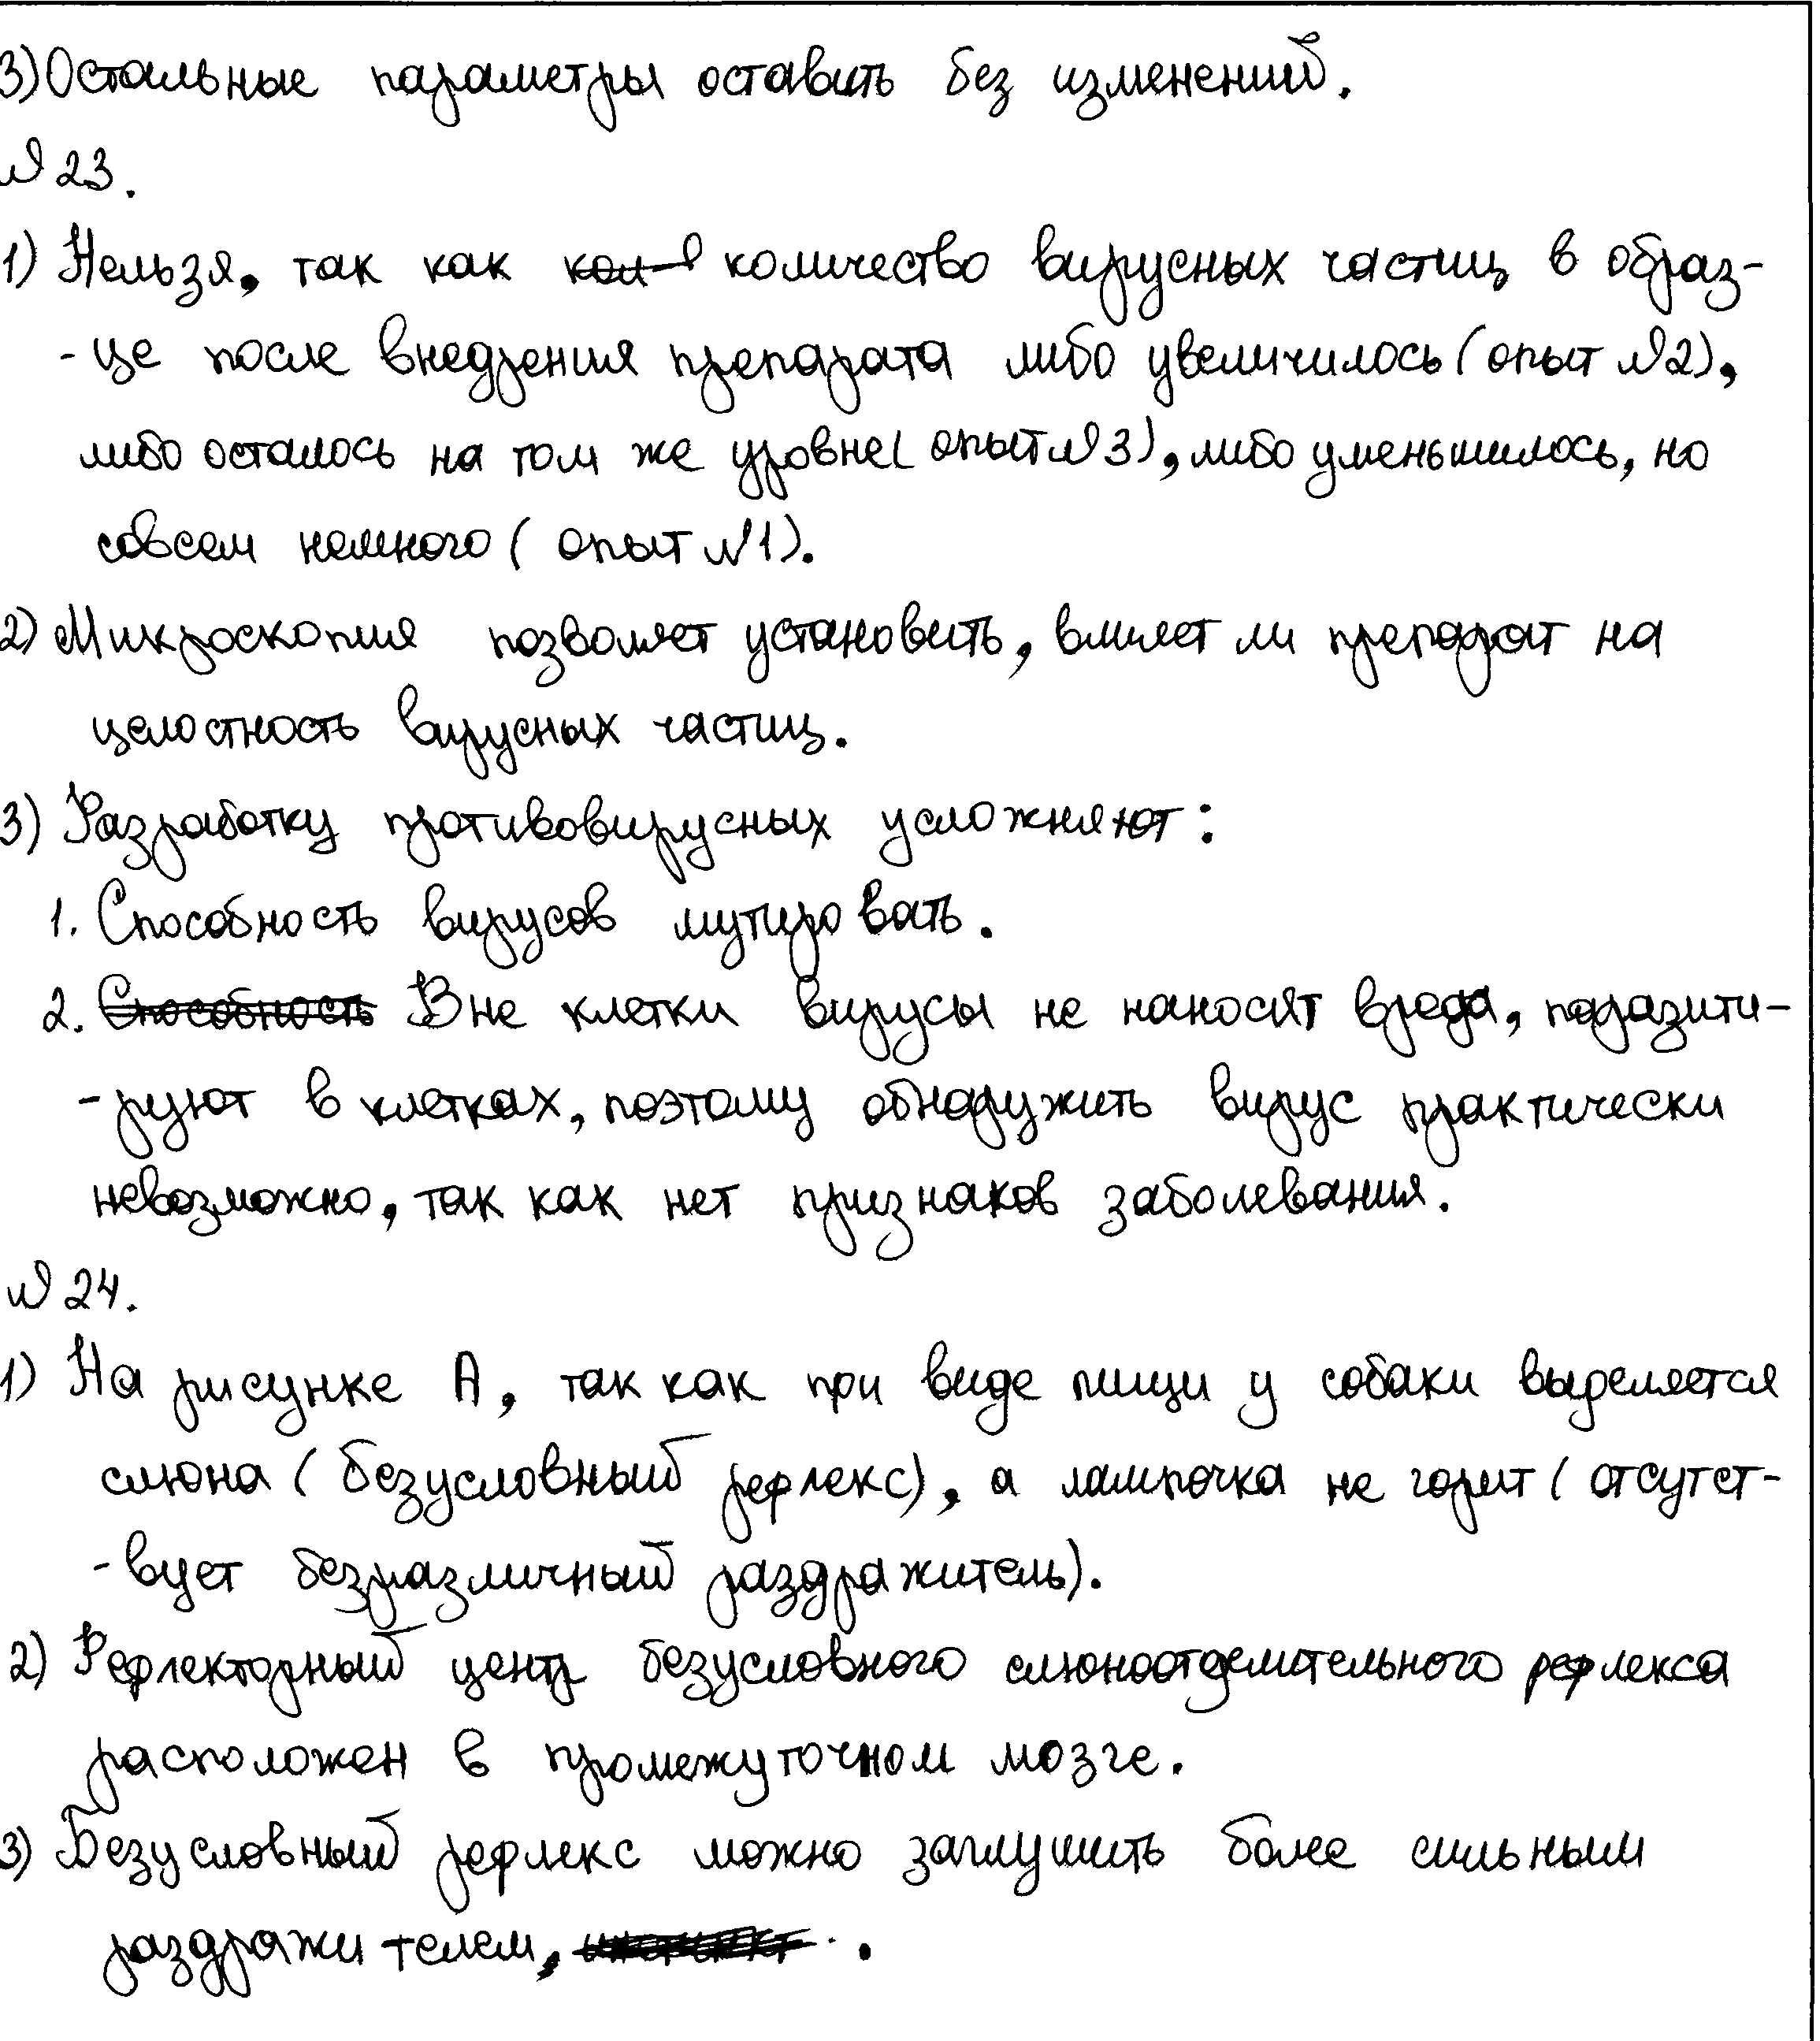 3) Остальные параметры оставить без изменений.
№ 23.
1) Нельзя, так как кол-в количество вирусных частиц в образ-
- це после внедрения препарата либо увеличилось (опыт №2),
либо осталось на том же уровне (опыт №3), либо уменьшилось, но
совсем немного (опыт №1).
2) Микроскопия позволяет установить, влияет ли препарат на
целостность вирусных частиц.
3) Разработку противовирусных усложняют:
1. Способность вирусов мутировать.
2. Способность Вне клетки вирусы не наносят вреда, паразити-
- руют в клетках, поэтому обнаружить вирус практически
невозможно, так как нет признаков заболевания.
№ 24.
1) На рисунке А, так как при виде пищи у собаки выделяется
слюна (безусловный рефлекс), а лампочка не горит (отсутст-
- вует безразличный раздражитель).
2) Рефлекторный центр безусловного слюноотделительного рефлекса
расположен в промежуточном мозге.
3) Безусловный рефлекс можно заглушить более сильным
раздражителем, .